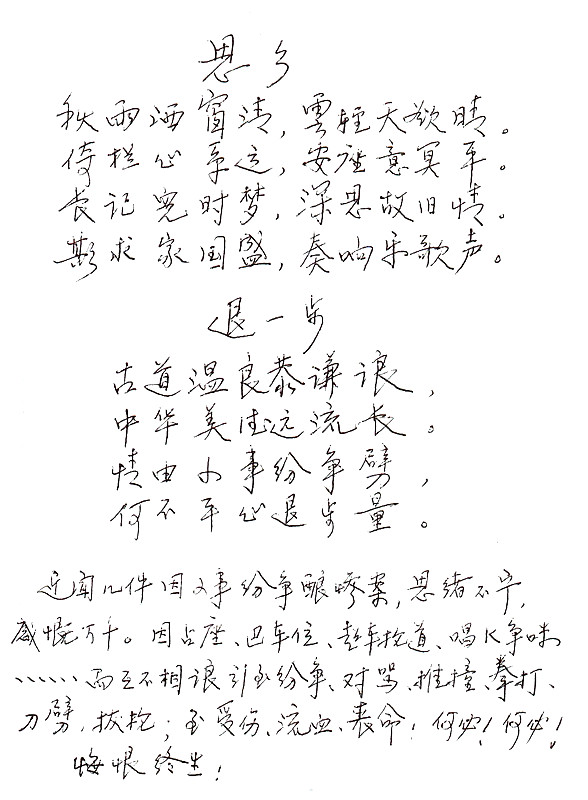 思乡
秋雨洒窗清，雲轻天欲晴。
倚栏心系远，安座意冥平。
长记兒时梦，深思故旧情。
期求家国盛，奏响乐歌声。
退一步
古道温良恭谦让，
中华美德远流长。
情由小事纷争劈，
何不平心退步量。
近闻几件因小事纷争酿惨案，思绪不宁，
感慨万千。因占座、巴车位、赶车抢道、唱K争咪
……而互不相让引至纷争、对骂、推撞、拳打、
刀劈、；至受伤、流血、丧命！何必！何必！
悔恨终生！